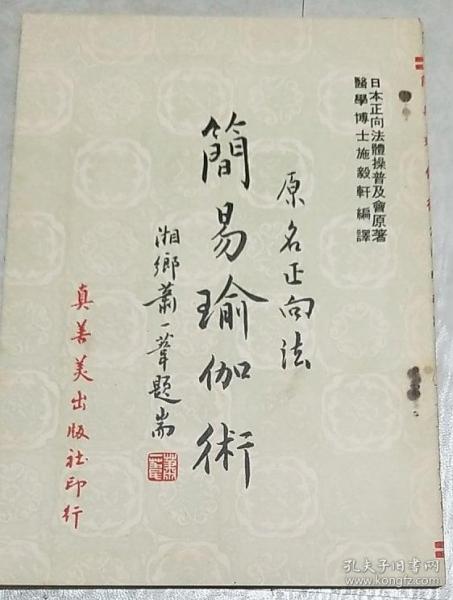 日本正向法體操普及會原著
醫學博士施毅軒編譯
原名正向法
簡易瑜伽術
湘鄉蕭一葦題耑
蕭一葦
真善美出版社印行
孔夫子旧书网
www.kongfz.com